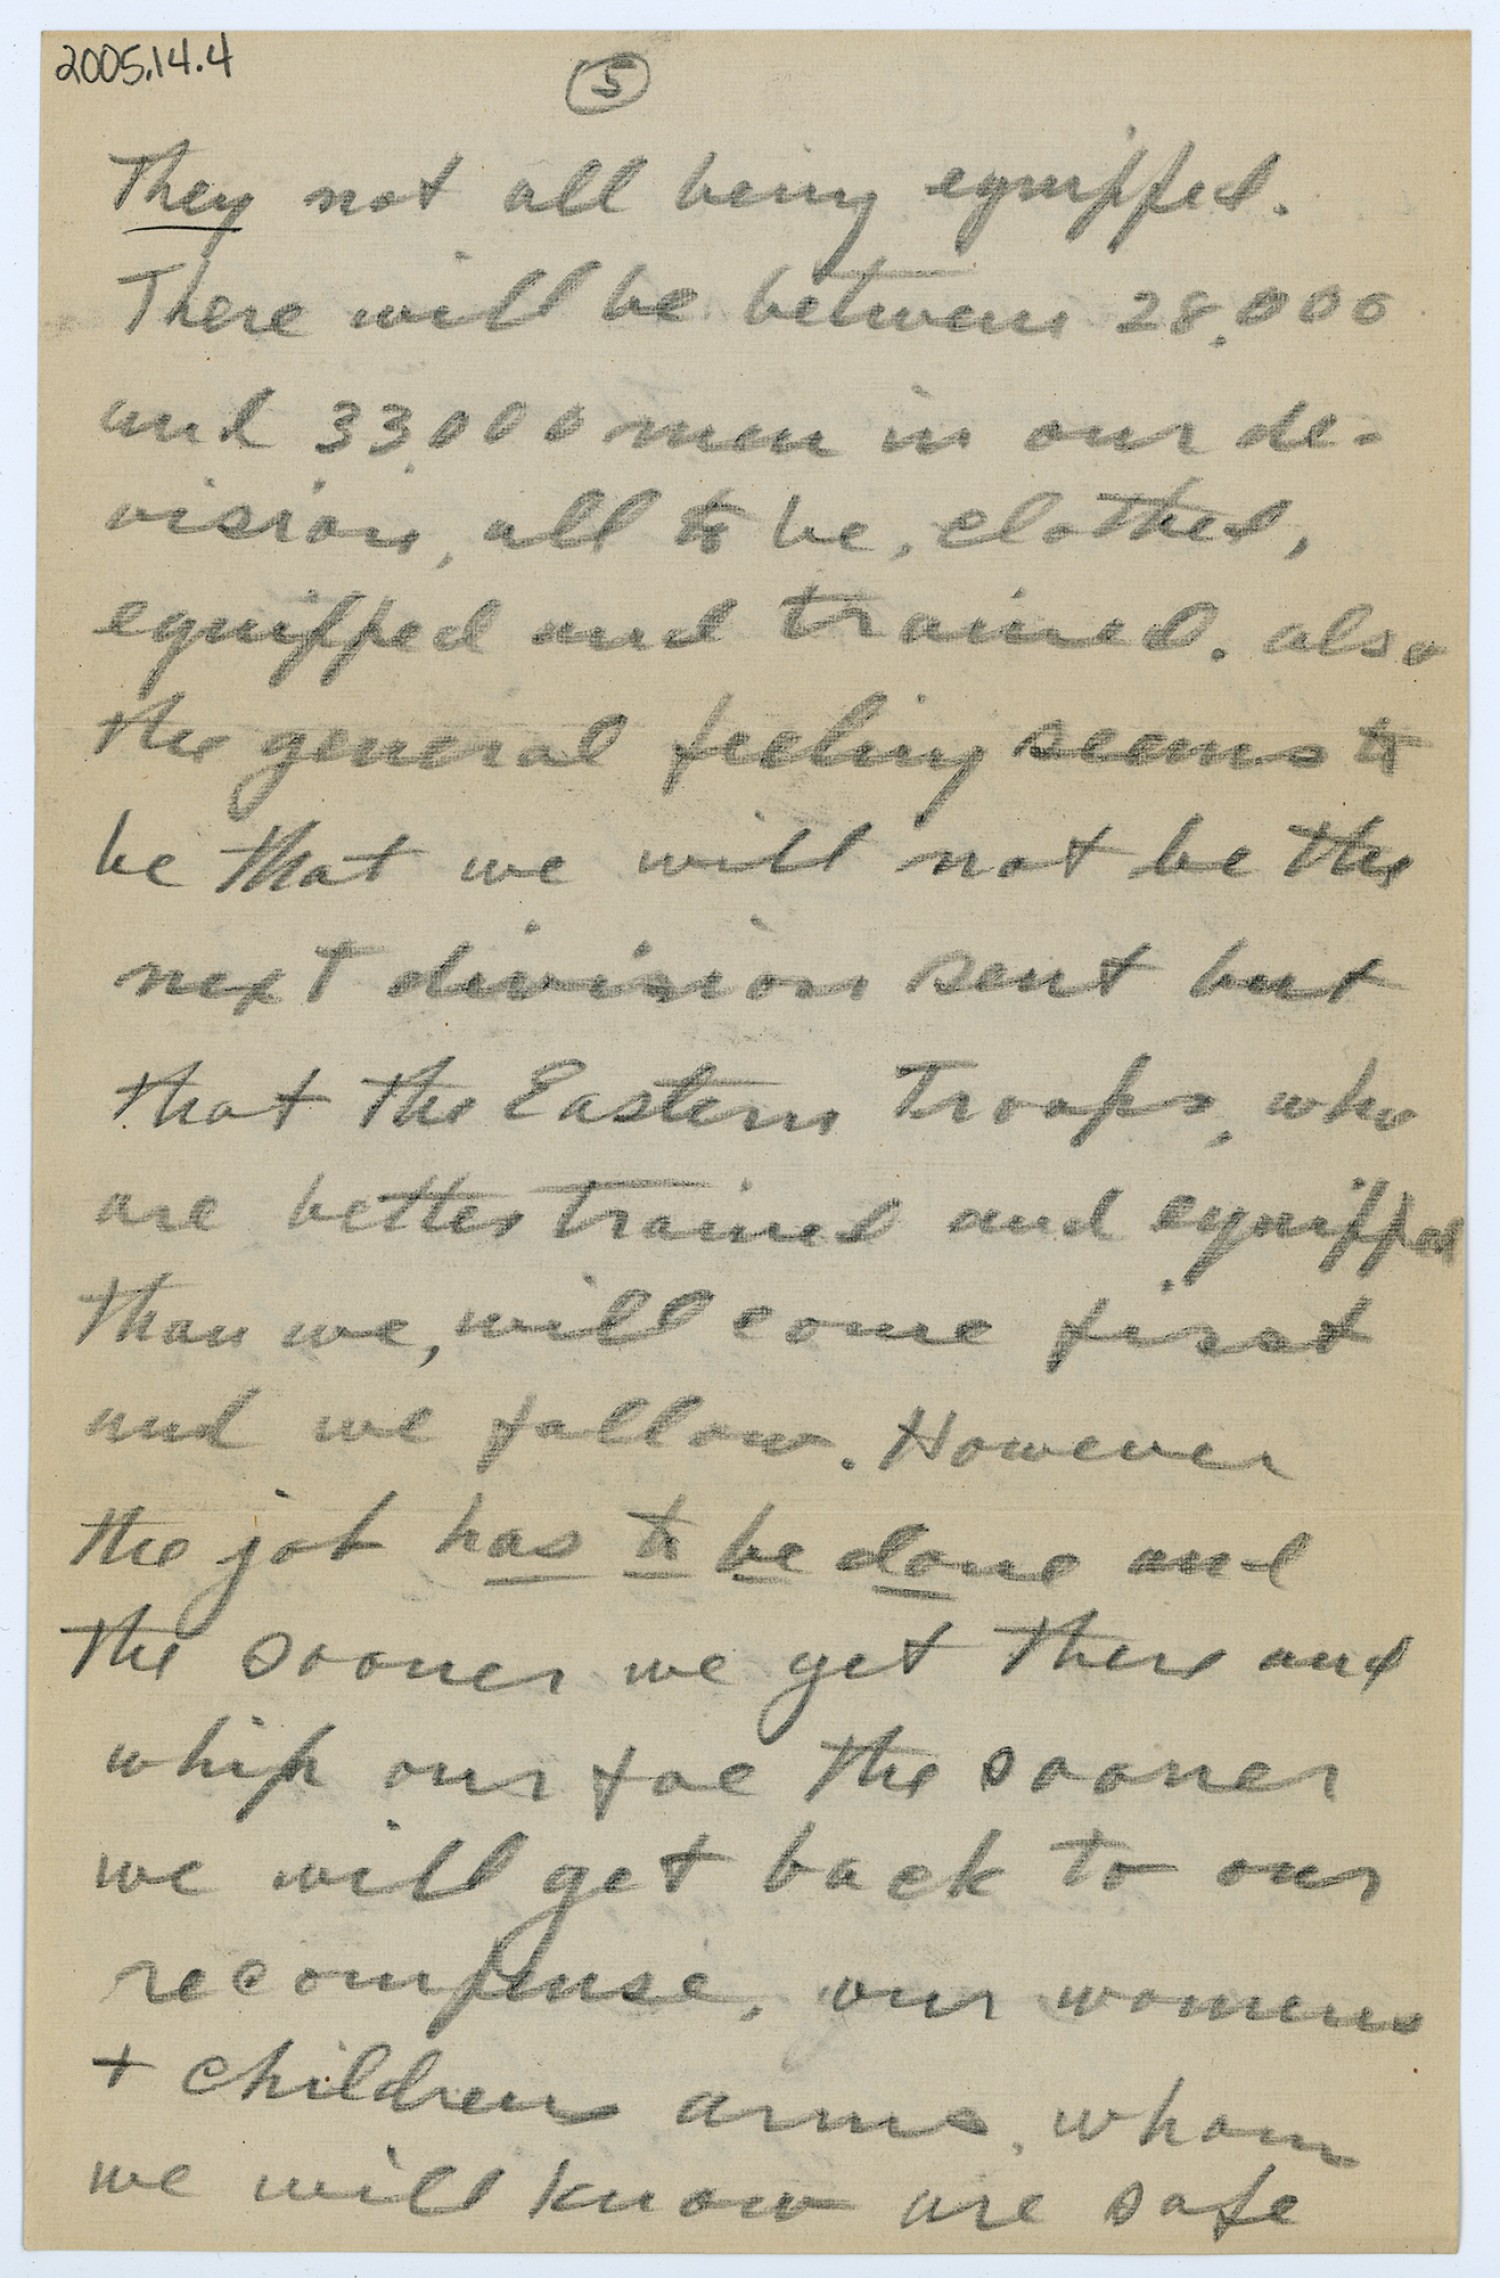 2005.14.4
5
They not all being equipped.
There will be between 28,000
and 33,000 men in our de-
vision, all to be, clothed,
equipped and trained. also
the general feeling seems to
be that we will not be the
next division sent but
that the Eastern Troops, who
are better trained and equipped
than we, will come first
and we follow. However
the job has to be done and
the sooner we get there and
whip our foe the sooner
we will get back to our
recompense, our womens
+ children arms, whom
we will know are safe